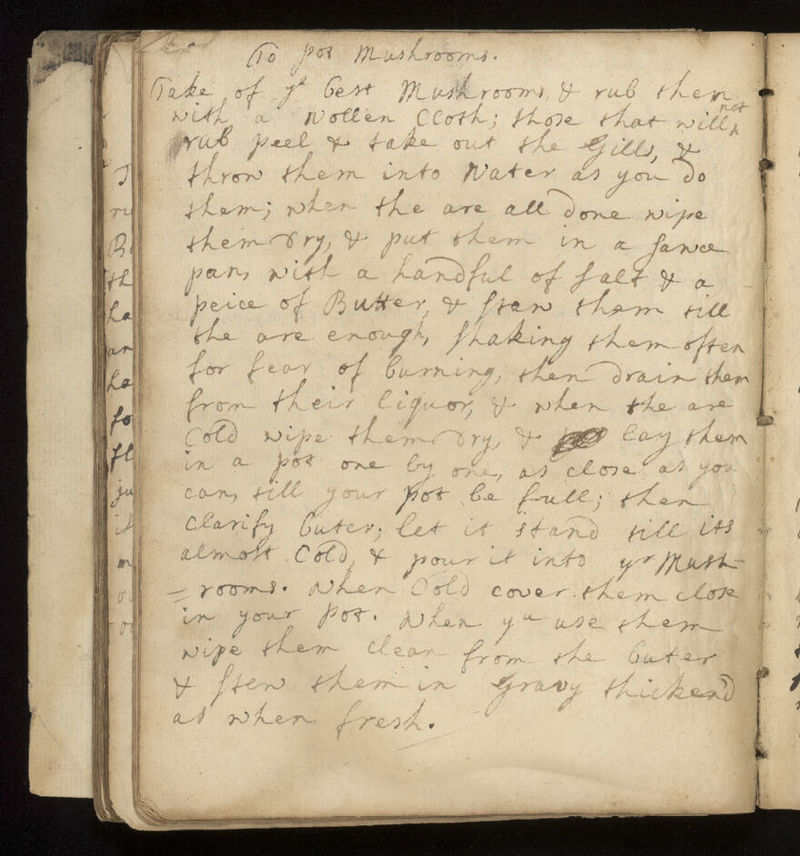 To pot Mushrooms.
Take of ye best Mushrooms, & rub them
with a Wollen Cloth; those that will not
rub peel & take out the Gills, &
throw them into Water as you do
them; when the are all done wipe
them dry, & put them in a sauce
pan, with a handful of salt & a
peice of Butter, & stew them till
the are enough, shaking them often
for fear of burning, then drain them
from their liquor, & when the are
Cold wipe them dry, & lay them
in a pot one by one, as close as you
can, till your pot be full; then
Clarify buter; let it stand till its
almost Cold, & pour it into yr Mush
=rooms. When Cold cover them close
in your pot. When yu use them
wipe them clean from the buter
& stew them in Gravy thicken'd
as when fresh.